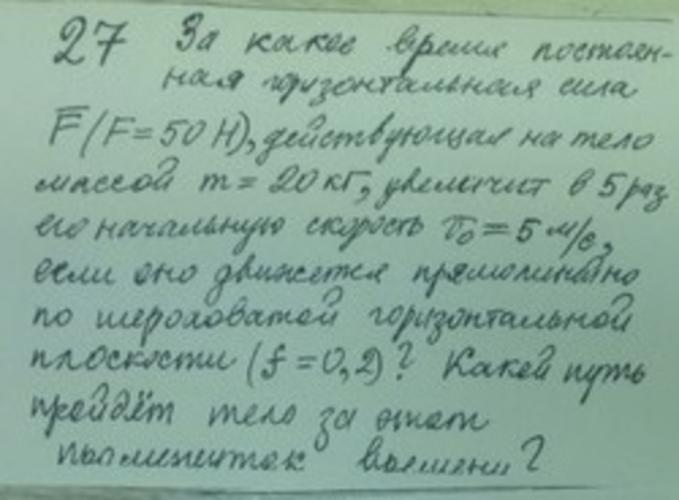 27 За какое время постоян-
ная горизонтальная сила
F (F = 50 Н), действующая на тело
массой m = 20 кг, увеличит в 5 раз
его начальную скорость v₀ = 5 м/с,
если оно движется прямолинейно
по шероховатой горизонтальной
плоскости (f = 0,2)? Какой путь
пройдёт тело за этот
промежуток времени?